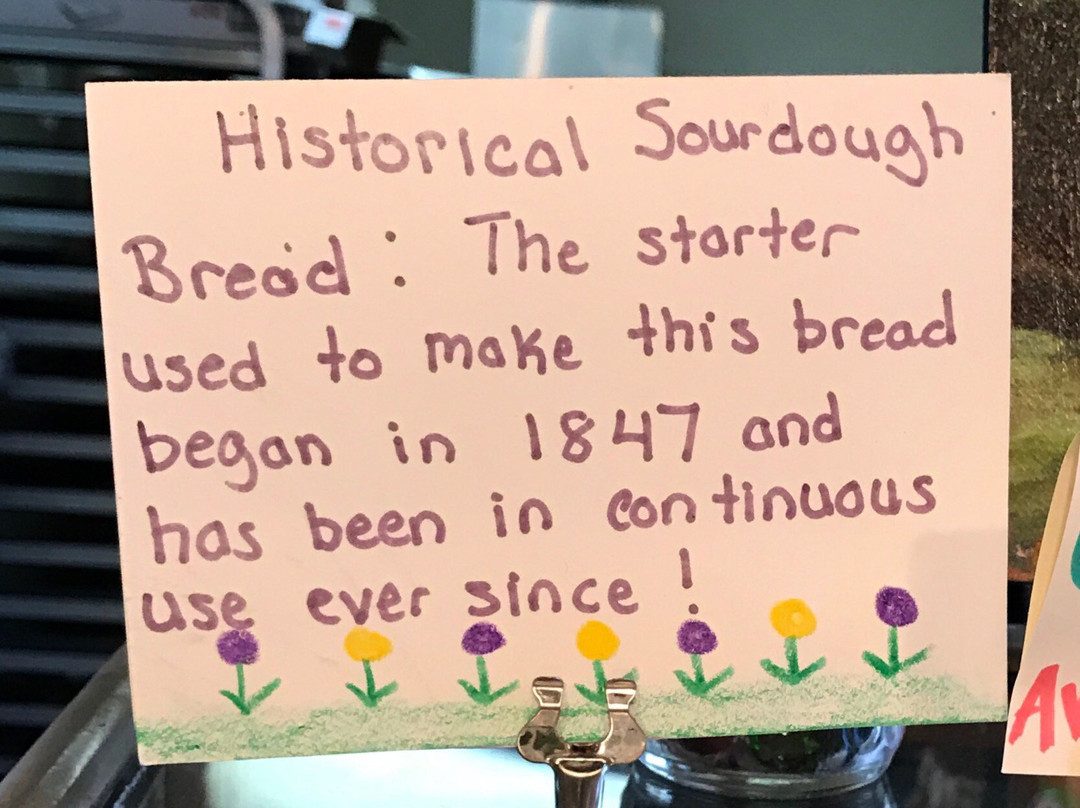 Historical Sourdough
Bread: The starter
used to make this bread
began in 1847 and
has been in continuous
use ever since!